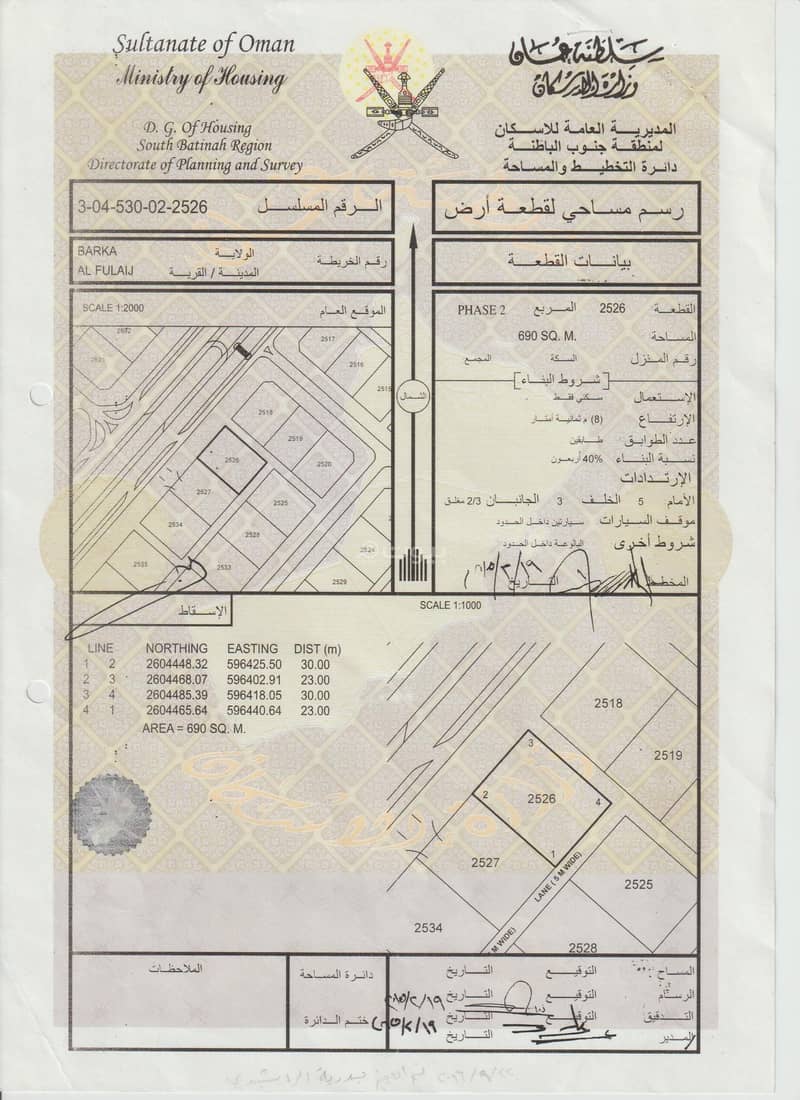 Sultanate of Oman
سلطنة عمان
Ministry of Housing
وزارة الإسكان
D. G. Of Housing
المديرية العامة للاسكان
South Batinah Region
لمنطقة جنوب الباطنة
Directorate of Planning and Survey
دائرة التخطيط والمساحة
3-04-530-02-2526 الرقم المسلسل
رسم مساحي لقطعة أرض
BARKA الولاية
AL FULAIJ المدينة / القرية
رقم الخريطة
بيانات القطعة
SCALE 1:2000 الموقع العام
2632
2517
2516
2515
2518
2519
2520
2526
2527
2525
2534
2528
2535
2533
2524
2529
الشمال
القطعة 2526 المربع PHASE 2
المساحة 690 SQ. M.
رقم المنزل السكة المجمع
شروط البناء
الإستعمال سكني فقط
الإرتفاع (8) م ثمانية أمتار
عدد الطوابق طابقين
نسبة البناء 40% أربعون
الإرتدادات
الأمام 5 الخلف 3 الجانبان 2/3 مغلق
موقف السيارات سيارتين داخل الحدود
شروط أخرى البالوعة داخل الحدود
المخطط التاريخ
الإسقاط
SCALE 1:1000
LINE NORTHING EASTING DIST (m)
1 2 2604448.32 596425.50 30.00
2 3 2604468.07 596402.91 23.00
3 4 2604485.39 596418.05 30.00
4 1 2604465.64 596440.64 23.00
AREA = 690 SQ. M.
2518
2519
3
2
2526
4
1
2527
LANE ( 5 M WIDE)
2525
2534
M WIDE)
2528
الملاحظات
دائرة المساحة
ختم الدائرة
المساح التوقيع التاريخ
الرسام التوقيع التاريخ
التدقيق التوقيع التاريخ
المدير التاريخ